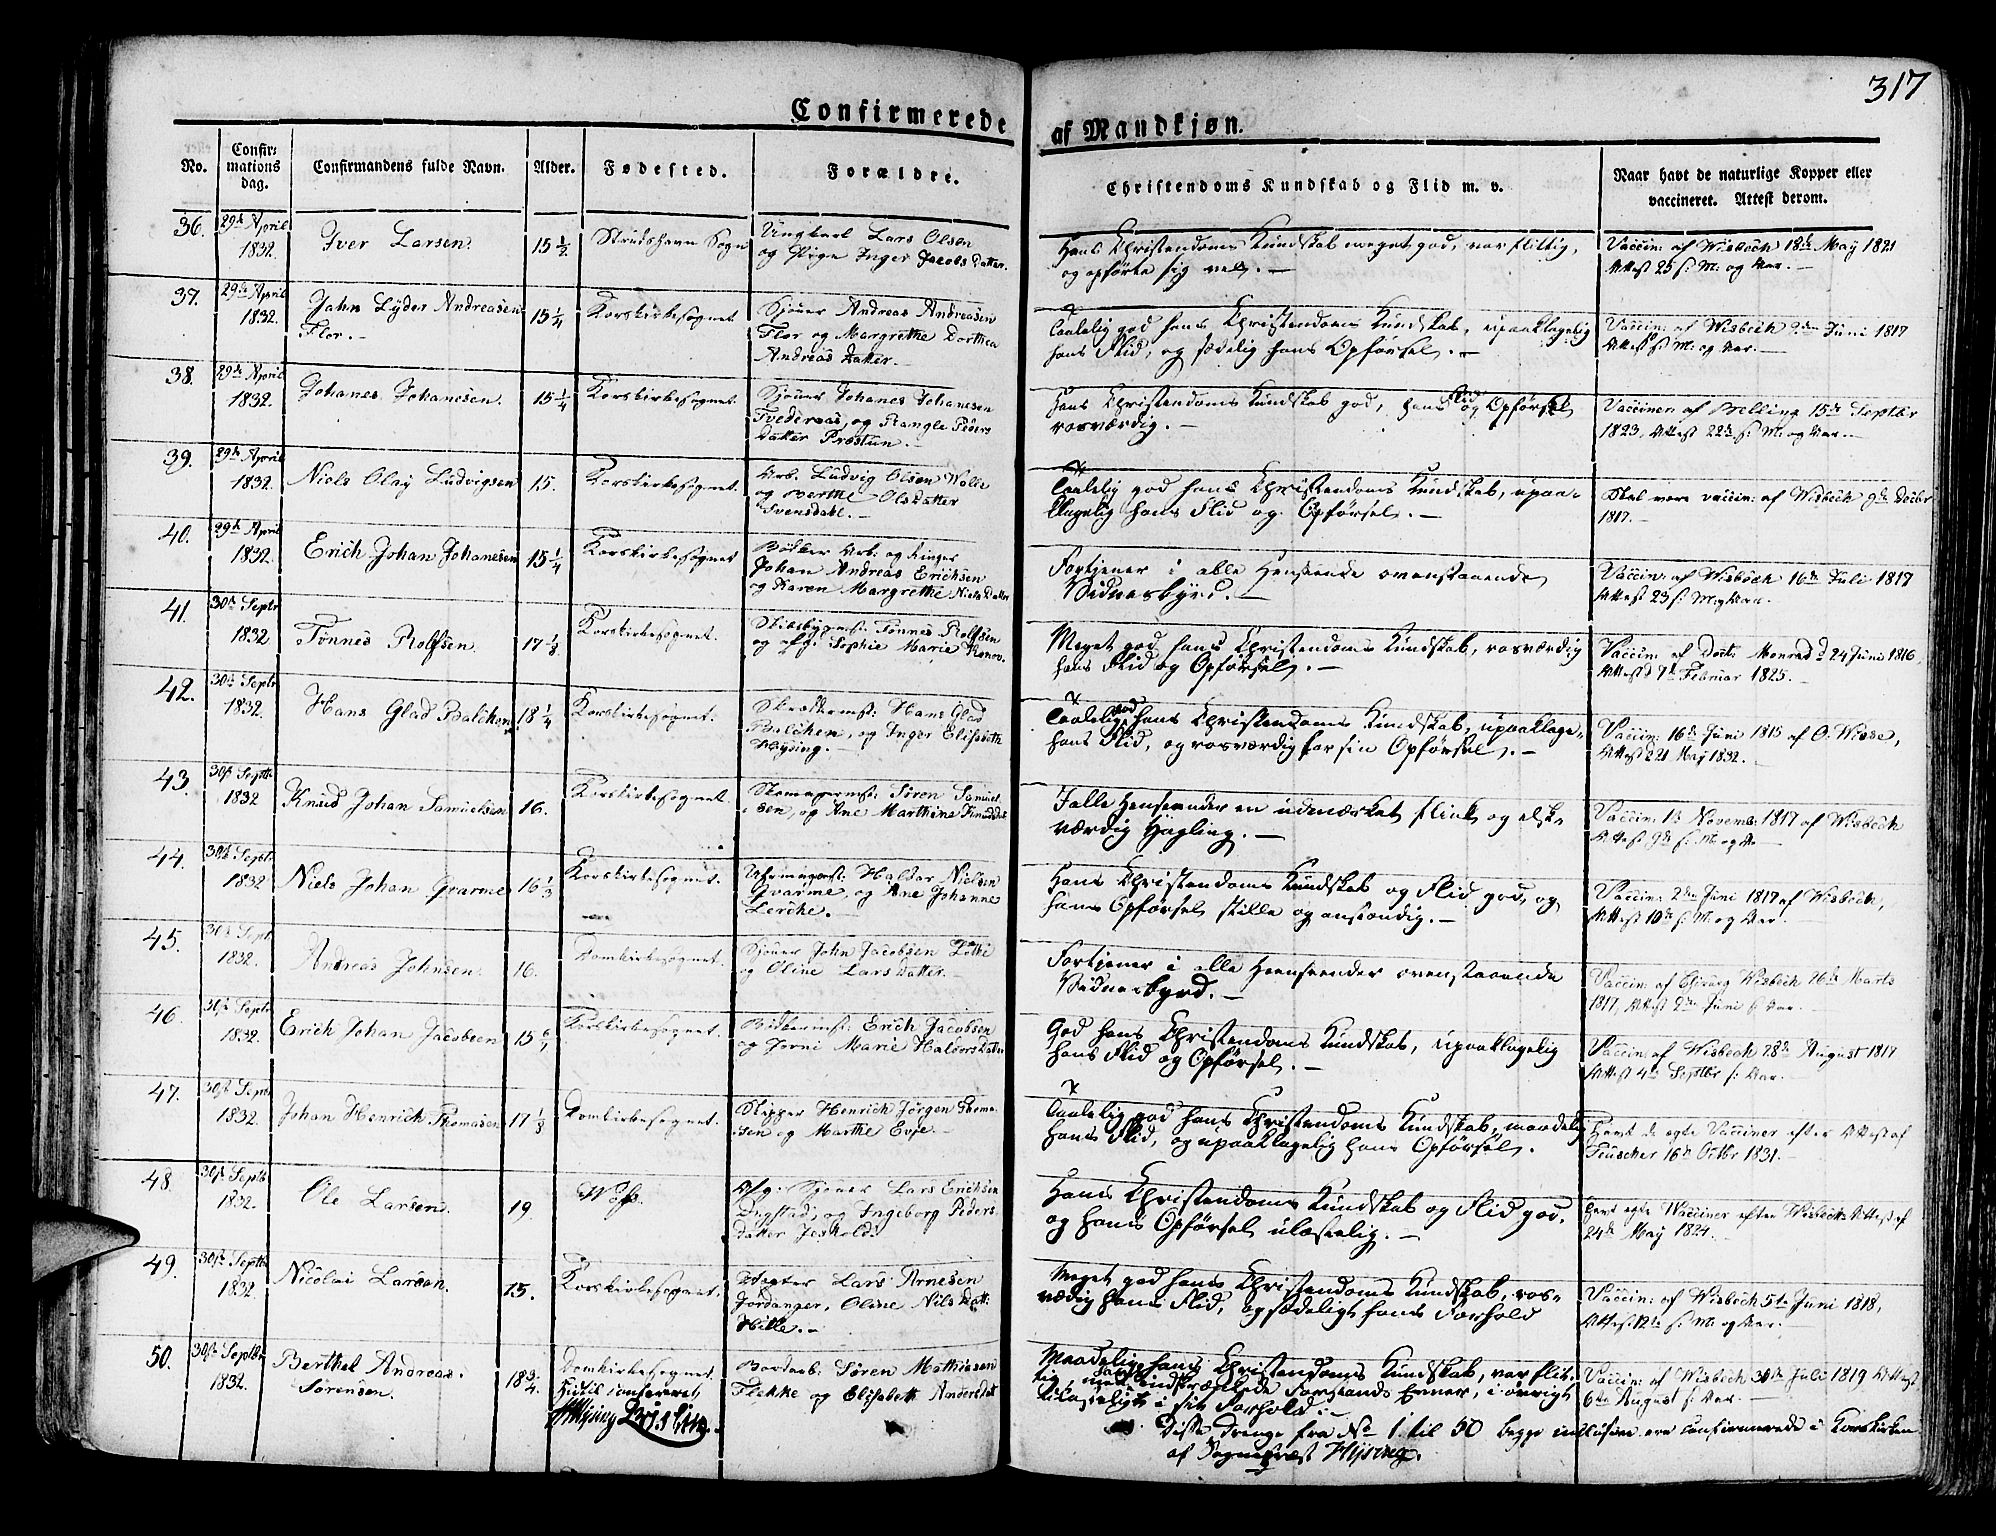 317
Confirmerede af Mandkjøn.
No.
Confir-
mations
dag.
Confirmandens fulde Navn.
Alder.
Fødested.
Forældre.
Christendoms Kundskab og Flid m. v.
Naar havt de naturlige Kopper eller
vaccineret. Attest derom.
36. 29de April 1832. Iver Larsen. 15 1/2 Strudshavn Sogn
Ungkarl Lars Olsen
og Pige Inger Jacobs Datter.
Hans Christendoms Kundskab meget god, var flittig,
og opførte sig vel. —
Vaccin: af Wisbech 18de May 1821
Attest 25 s: M: og Aar. —
37. 29de April 1832. Jahn Lyder Andreasen
Flor. — 15 1/4 Korskirkesognet
Sjouer Andreas Andreasen
Flor og Margrethe Dorthea
Andreas Datter.
Taalelig god hans Christendoms Kundskab, upaaklagelig
hans Flid, og sædelig hans Opførsel. —
Vaccin: af Wisbech 9de Juni 1817
Attest s: M: og Aar. —
38. 29de April 1832. Johanes Johanesen. 15 1/4 Korskirkesognet.
Sjouer Johanes Johanesen
Tvederaas, og Rangle Peders
Datter Prostun. —
Hans Christendoms Kundskab god, hans Flid og Opførsel
rosværdig. —
Vacciner: af Belling 15de Septbr
1823, Attest 22de s: M: og Aar. —
39. 29de April 1832. Niels Olay Ludvigsen 15. Korskirkesognet.
Arb. Ludvig Olsen Wolle
og Berthe Olsdatter
Svensdahl. —
Taalelig god hans Christendoms Kundskab, upaa-
klagelig hans Flid og Opførsel. —
Skal være vaccin: af Wisbech 9de Decbr
1817. —
40. 29de April 1832. Erich Johan Johanesen 15 1/4 Korskirkesognet
Bødker Arb: og Ringer
Johan Andreas Erichsen
og Karen Margrethe Niels Datter
Fortjener i alle Henseende ovenstaaende
Vidnesbyrd. —
Vaccin: af Wisbech 16de Juli 1817
Attest 23 s: M: og Aar.
41. 30te Septr 1832 Tønnes Rolfsen. 17 1/3 Korskirkesognet.
Skibsbygmst: Tønnes Rolfsen
og Sophie Marie Konov.
Meget god hans Christendoms Kundskab, rosværdig
hans Flid og Opførsel. —
Vaccin: af Doct: Monrad d 24 Juni 1816,
Attest d 7de Februar 1825. —
42. 30te Septr 1832. Hans Glad Balchen 18 1/4 Korskirkesognet.
Skræddermst: Hans Glad
Balchen, og Inger Elisabeth
Hysing. —
Taalelig god hans Christendoms Kundskab, upaaklage-
hans Flid, og rosværdig for sin Opførsel. —
Vaccin: 16de Juni 1815 af O. Wisse,
Attest 221 May 1832. —
43. 30te Septbr 1832 Knud Johan Samuelsen 16. Korskirkesognet.
Skomagermst: Søren Samuel-
sen, og Ane Marthine Knudsdat
I alle Henseender en udmærket flink og elsk-
værdig Yngling. —
Vaccin: 13 Novemb: 1817 af Wisbech
Attest 9de s: M og Aar —
44. 30te Septbr 1832 Niels Johan Qvarme 16 1/3 Korskirkesognet.
Uhrmagermst: Haldor Nielsen
Qvarme, og Ane Johanne
Lerche. —
Hans Christendoms Kundskab og Flid god, og
hans Opførsel stille og anstændig. —
Vaccin: 2den Juni 1817 af Wisbech,
Attest 10de s: M: og Aar. —
45. 30te Septr 1832. Andreas Johnsen. 16. Domkirkesognet.
Sjouer John Jacobsen Lothe
og Oline Lars Datter. —
Fortjener i alle Henseender ovenstaaende
Vidnesbyrd. —
Vaccin: af Wisbech 26de Marts
1817, Attest 2den Juni s: Aar. —
46. 30te Septr 1832. Erich Johan Jacobsen 15 Korskirkesognet.
Bødkermst: Erich Jacobsen
og Jorni Marie Haldors Datter
God hans Christendoms Kundskab, upaaklagelig
hans Flid og Opførsel. —
Vaccin: af Wisbech 28de August 1817
Attest 4de Septbr s: Aar. —
47. 30te Septr 1832. Johan Henrich Thomasen 17 1/3 Domkirkesognet.
Skipper Henrich Jørgen Thoma-
sen og Marthe Evje. —
Taalelig god hans Christendoms Kundskab, maadelig
hans Flid, og upaaklagelig hans Opførsel.
Havt de egte Vacciner efter Attest af
Fleischer 16de Octbr 1831. —
48. 30te Septbr 1832. Ole Larsen. 19. Woss.
Afg: Sjouer Lars Erichsen
Dugstad, og Ingeborg Peders-
datter Jershold.
Hans Christendoms Kundskab og Flid god,
og hans Opførsel ulastelig. —
Havt egte Vacciner efter Wisbechs Attest af
24de May 1824. —
49. 30te Septbr 1832. Nicolai Larsen. 15. Korskirkesognet.
Vægter Lars Arnesen
Jordanger, Oline Nils Datt:
Hille. —
Meget god hans Christendoms Kundskab, ros-
værdig hans Flid, og sædeligt hans Forhold
Vaccin: af Wisbech 5te Juni 1818,
Attest 12te s: M: og Aar. —
50. 30te Septbr 1832. Berthel Andreas
Sørensen. 18 3/4 Domkirkesognet.
Hidtil confereret
Hysing
Bordarb: Søren Mathiasen
Flekke og Elisabeth Andersdat
Maadelig hans Christendoms Kundskab, var flit-
tig, indskrænkede Forstands Evner, i øvrigt
ulasteligt i sit Forhold. —
Vaccin: af Wisbech 30te Juli 1819 Attest
6te August s: Aar. —
Disse Drenge fra No 1. til 50 begge inklusive ere confirmerede i Korskirken
af Sognepræst Hysing.